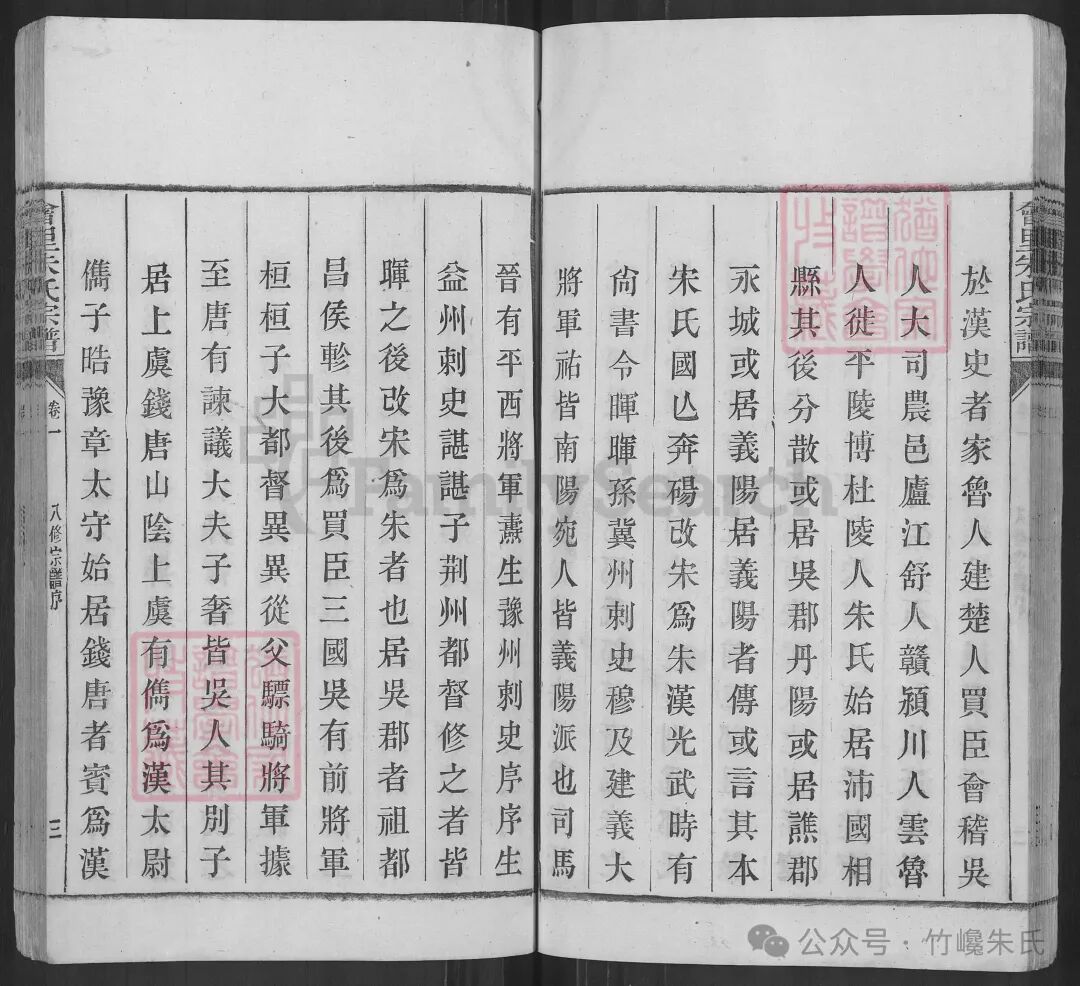 會里朱氏宗譜
於漢史者家魯人建楚人買臣會稽吳
人大司農邑廬江舒人贛潁川人雲魯
人徙平陵博杜陵人朱氏始居沛國相
縣其後分散或居吳郡丹陽或居譙郡
永城或居義陽居義陽者傳或言其本
宋氏國亾奔碭改宋爲朱漢光武時有
尙書令暉暉孫冀州刺史穆及建義大
將軍祐皆南陽宛人皆義陽派也司馬
晉有平西將軍燾生豫州刺史序序生
益州刺史諶諶子荆州都督修之者皆
暉之後改宋爲朱者也居吳郡者祖都
昌侯軫其後爲買臣三國吳有前將軍
桓桓子大都督異異從父驃騎將軍據
至唐有諫議大夫子奢皆吳人其別子
居上虞錢唐山陰上虞有儁爲漢太尉
儁子晧豫章太守始居錢唐者賓爲漢
會里朱氏宗譜
卷一
八修宗譜序
三
FamilySearch
公众号·竹巉朱氏